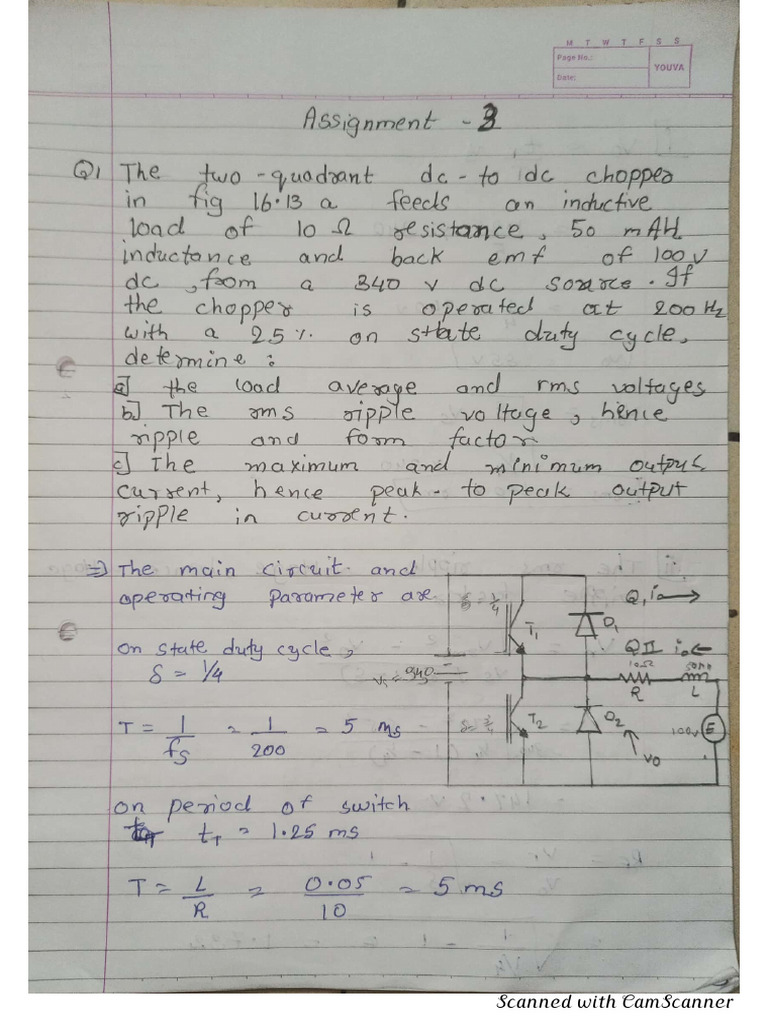 M T W T F S S
Page No.:
Date:
YOUVA
Assignment - 3
Q1 The two-quadrant dc-to dc chopper
in fig 16.13 a feeds an inductive
load of 10 Ω resistance, 50 mAH
inductance and back emf of 100 v
dc, from a 340 v dc source. If
the chopper is operated at 200 Hz
with a 25% on state duty cycle,
determine :
a] the load average and rms voltages
b] The rms ripple voltage, hence
ripple and form factor
c] The maximum and minimum output
current, hence peak-to peak output
ripple in current.
=> The main circuit and
operating parameter are
on state duty cycle,
δ = 1/4
T = 1/fs = 1/200 = 5 ms
on period of switch
tT = 1.25 ms
T = L/R = 0.05/10 = 5 ms
δ = 1/4
T1
D1
Q, io
QII io
Vs = 340
10Ω
50mH
R
L
δ = 3/4
T2
D2
Vo
100v
E
Scanned with CamScanner